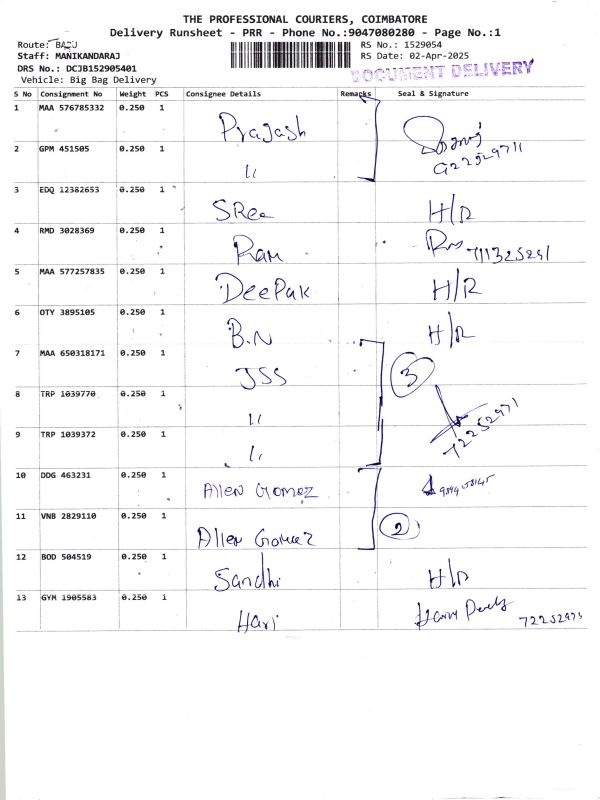 THE PROFESSIONAL COURIERS, COIMBATORE
Delivery Runsheet - PRR - Phone No.:9047080280 - Page No.:1
Route: BABU
RS No.: 1529054
Staff: MANIKANDARAJ
RS Date: 02-Apr-2025
DRS No.: DCJB152905401
DOCUMENT DELIVERY
Vehicle: Big Bag Delivery
S No Consignment No Weight PCS Consignee Details Remarks Seal & Signature
1 MAA 576785332 0.250 1 Prajash
2 GPM 451505 0.250 1 "
3 EDQ 12382653 0.250 1 SRee H/R
4 RMD 3028369 0.250 1 Ram
5 MAA 577257835 0.250 1 DeePak H/R
6 OTY 3895105 0.250 1 B.N H/R
7 MAA 650318171 0.250 1 JSS 3
8 TRP 1039770 0.250 1 "
9 TRP 1039372 0.250 1 " 72252971
10 DDG 463231 0.250 1 Allen Gomez
11 VNB 2829110 0.250 1 Allen Gomez 2
12 BOD 504519 0.250 1 Sandhi H/R
13 GYM 1905583 0.250 1 Hari 7225297